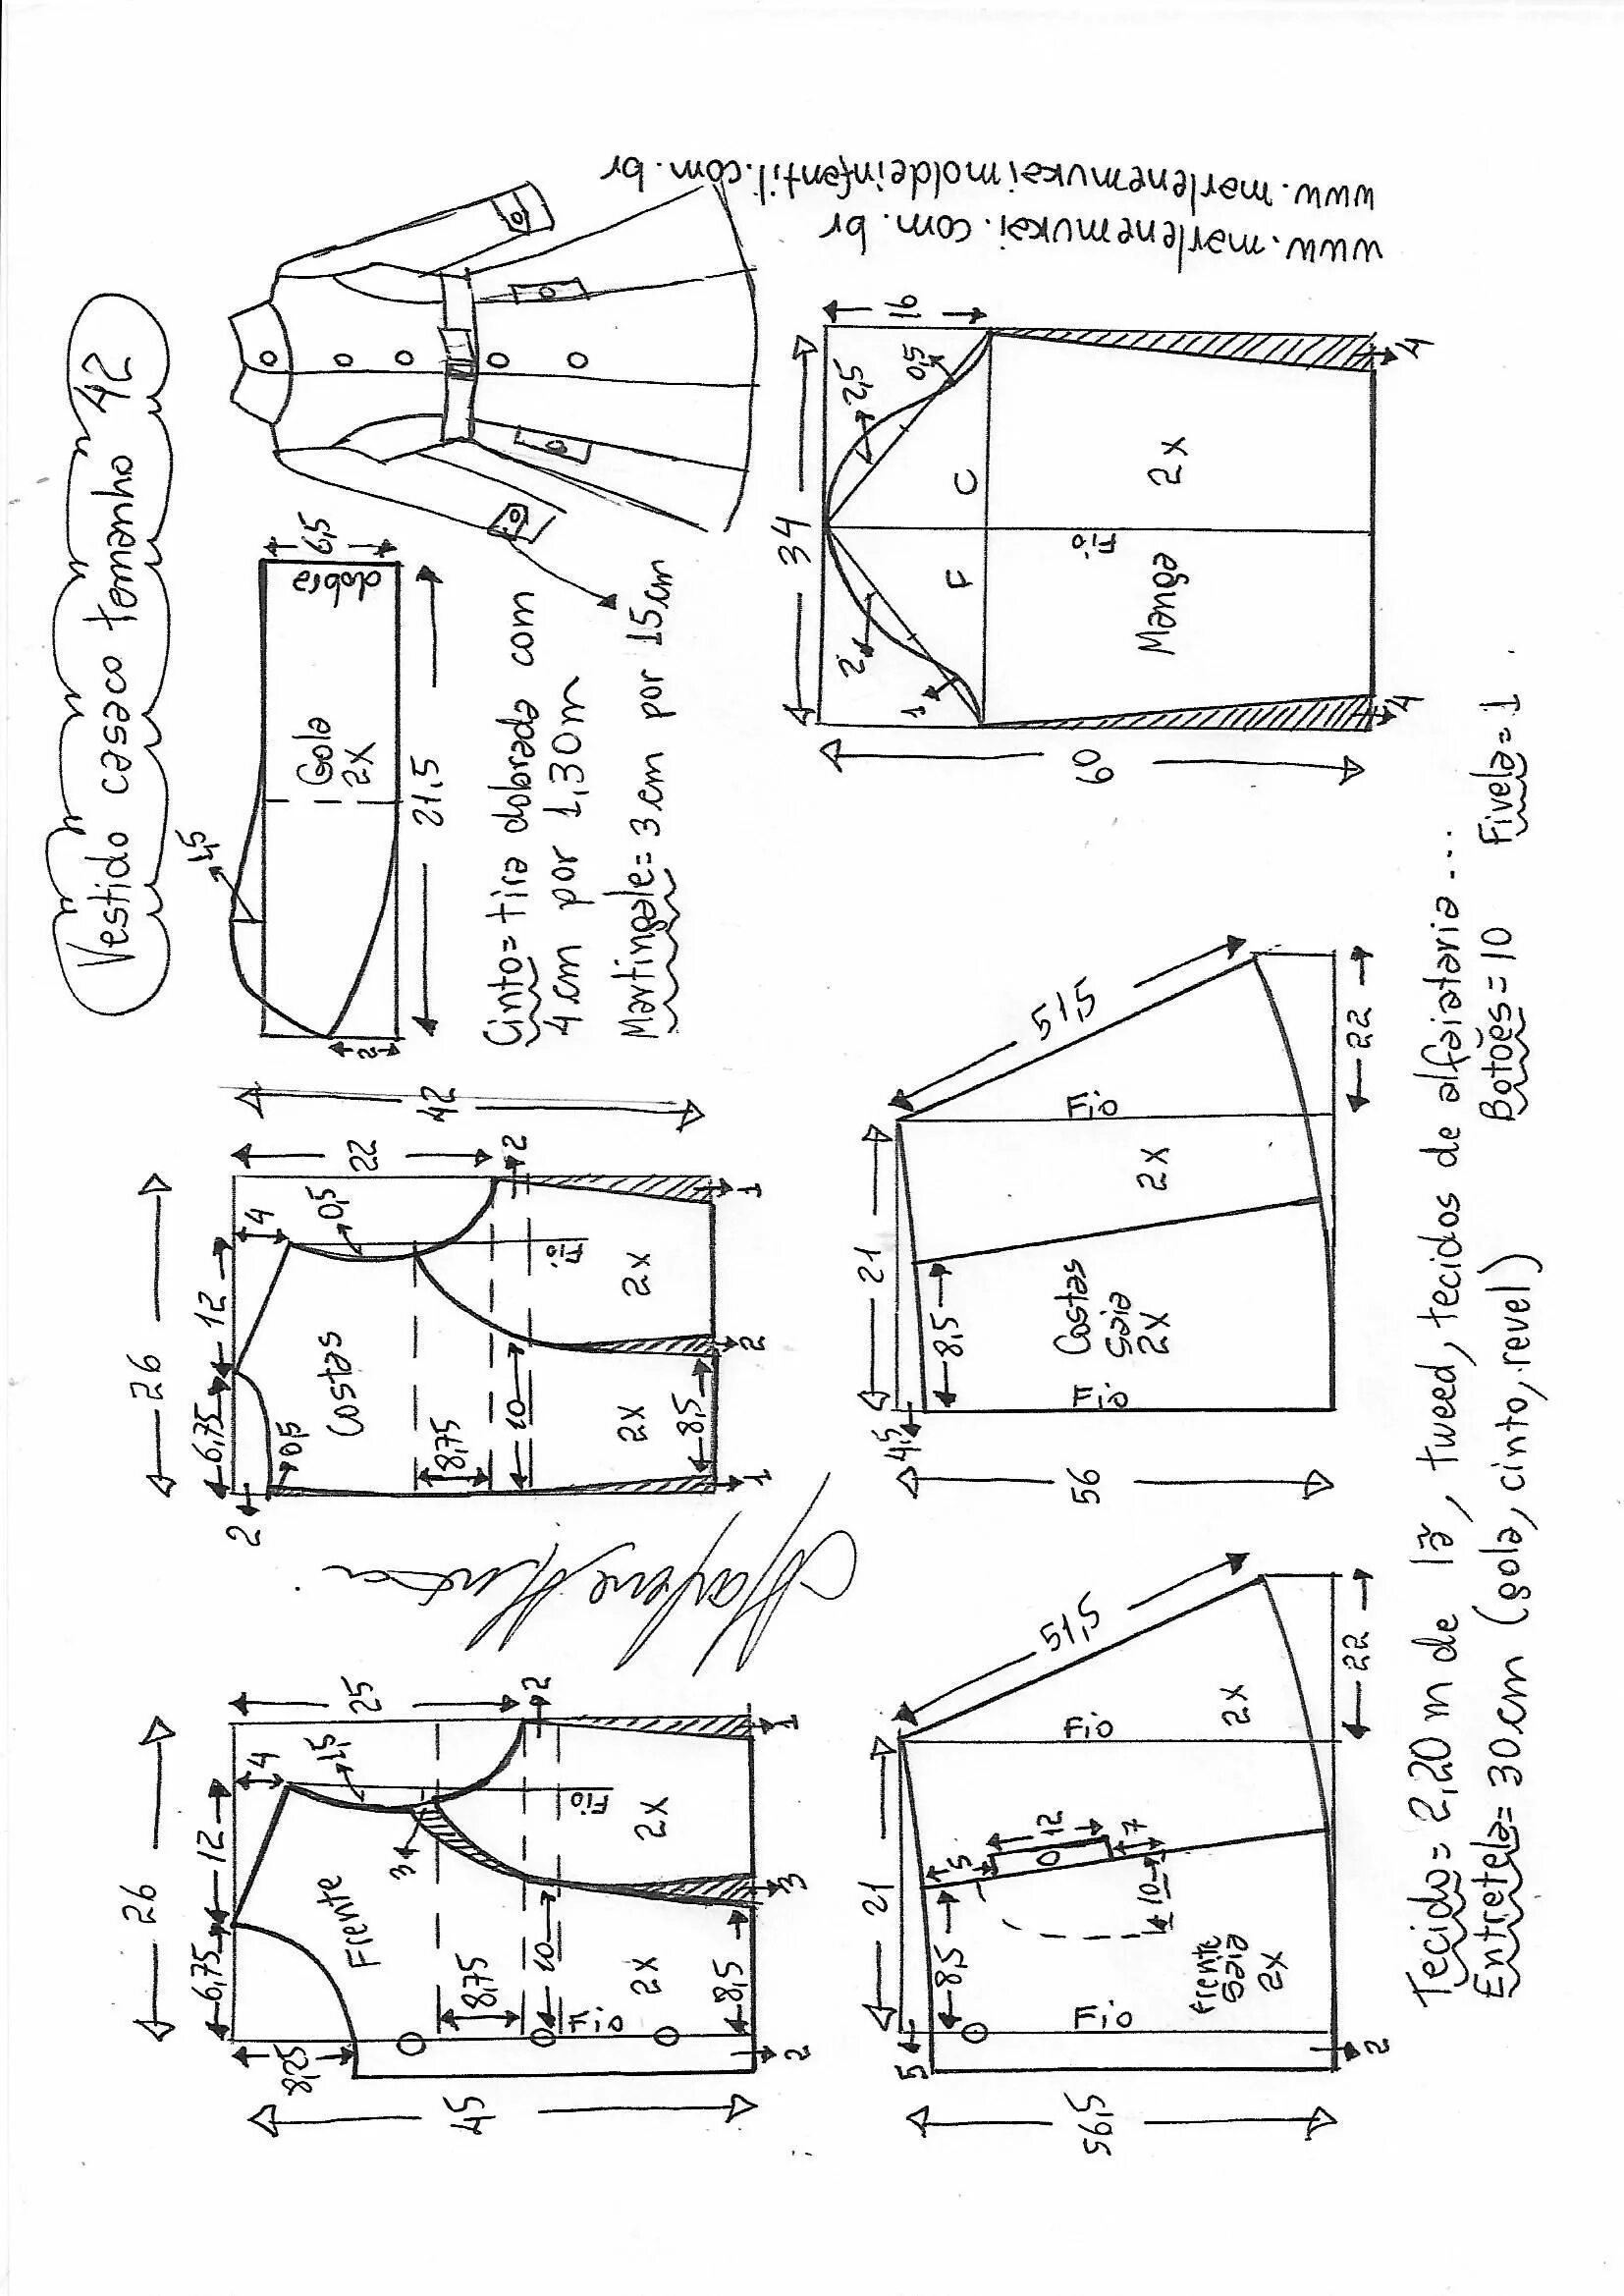 Vestido casaco tamanho 42
26
6,75
12
4
8,25
1,5
25
Frente
3
8,75
10
2
Fio
Fio
2X
2X
8,5
45
2
3
1
26
6,75
12
4
2
0,5
0,5
22
42
Costas
8,75
10
2
Fio
2X
2X
8,5
1
2
1
Marlene Mukai
1,5
2
Gola
2X
dobra
6,5
21,5
Cinto= tira dobrada com
4 cm por 1,30m
Martingale= 3 cm por 15cm
21
5
8,5
5
12
7
10
51,5
56,5
Fio
Fio
frente
saia
2X
2X
2
22
21
4,5
8,5
51,5
56
Fio
Fio
Costas
saia
2X
2X
22
34
16
2
2,5
1
0,5
F
C
60
Manga
Fio
2X
4
4
www.marlenemukai.com.br
www.marlenemukaimoldeinfantil.com.br
Tecido= 2,20 m de lã, tweed, tecidos de alfaiataria...
Entretela= 30 cm (gola, cinto, revel)
Botões= 10
Fivela= 1